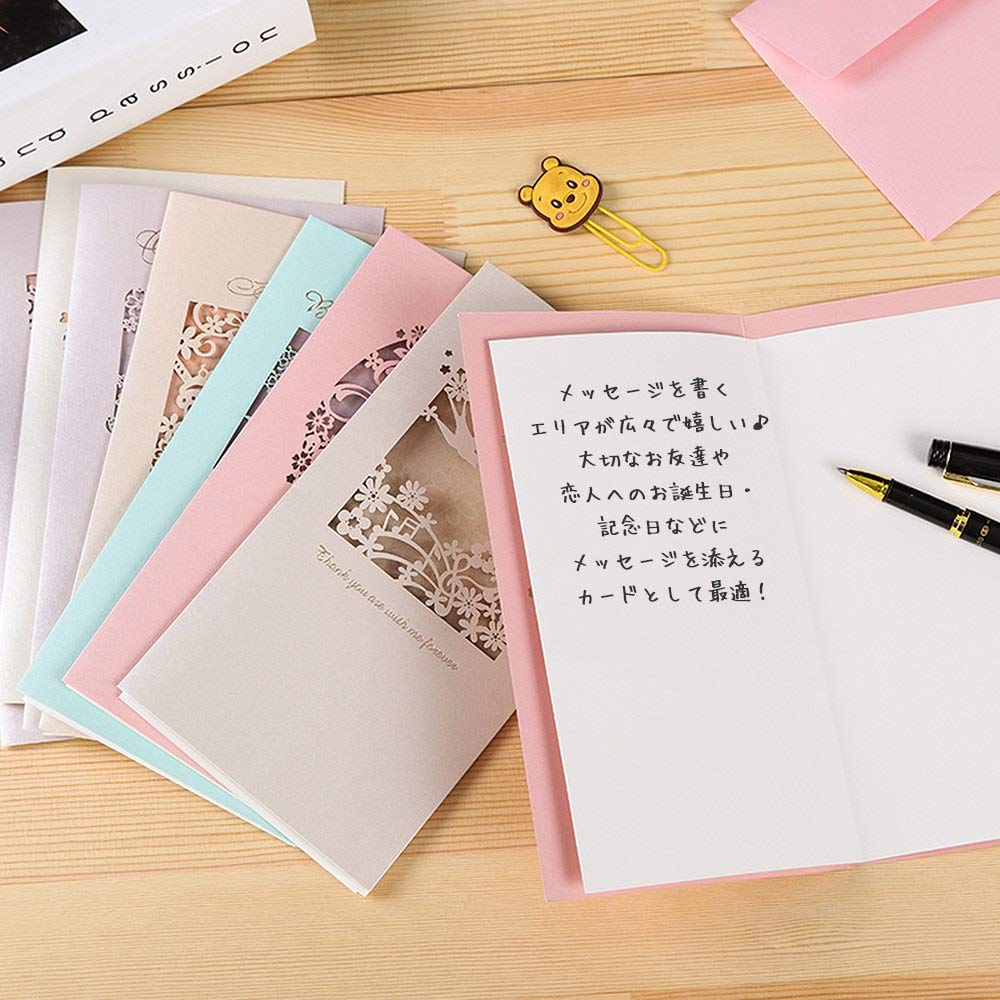 passion
メッセージを書く
エリアが広々で嬉しい♪
大切なお友達や
恋人へのお誕生日・
記念日などに
メッセージを添える
カードとして最適！
Thank you are with me forever